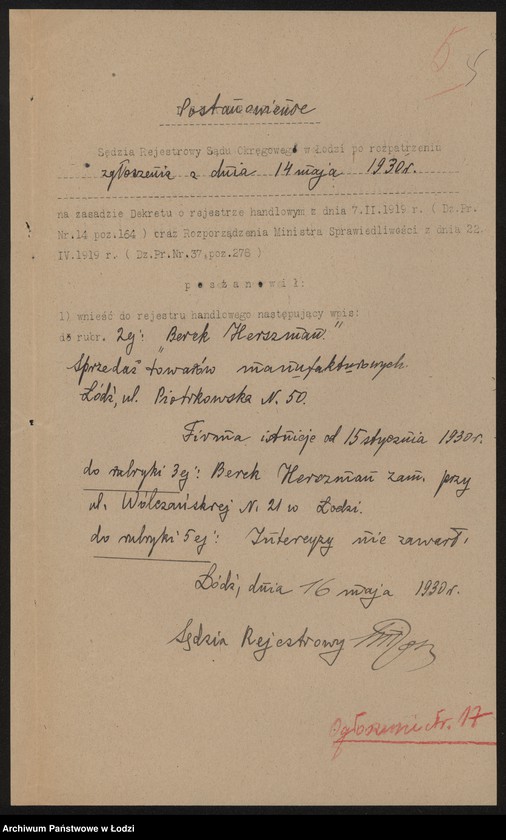 5 5
Postanowienie
Sędzia Rejestrowy Sądu Okręgowego w Łodzi po rozpatrzeniu
zgłoszenia z dnia 14 maja 1930 r.
na zasadzie Dekretu o rejestrze handlowym z dnia 7.II.1919 r. ( Dz.Pr.
Nr.14 poz.164 ) oraz Rozporządzenia Ministra Sprawiedliwości z dnia 22.
IV.1919 r. ( Dz.Pr.Nr.37,poz.278 )
p o s t a n o w i ł:
1) wnieść do rejestru handlowego następujący wpis:
do rubr. 2ej: "Berek Herszman"
Sprzedaż towarów manufakturowych.
Łódź, ul. Piotrkowska N. 50.
Firma istnieje od 15 stycznia 1930 r.
do rubryki 3ej: Berek Herszman zam. przy
ul. Wólczańskiej N. 21 w Łodzi.
do rubryki 5ej: Intercyzy nie zawarł.
Łódź, dnia 16 maja 1930 r.
Sędzia Rejestrowy
Ogłoszenie Nr. 17
Archiwum Państwowe w Łodzi